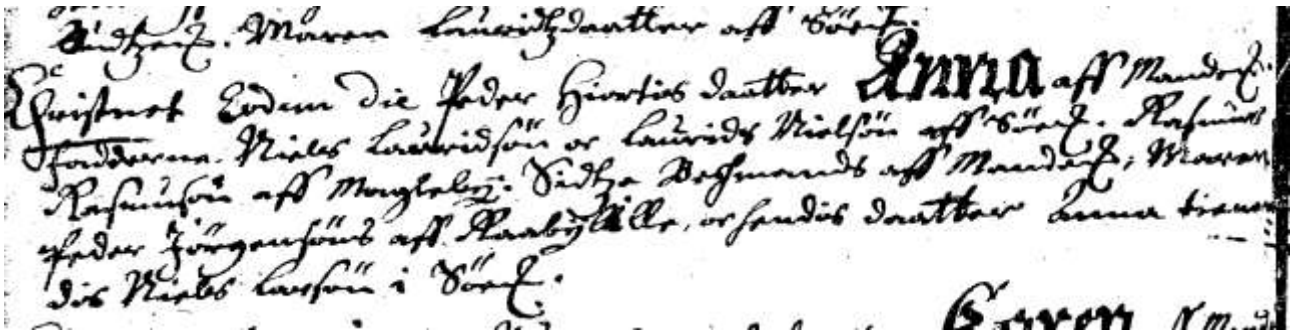 Maren Lauridtzdaatter aff Sør
Christnet Eodem die Peder Hiortis daatter Anna aff Mande
fadderne. Niels Lauridsøn oc Laurids Nielsøn aff Sør. Rasmus
Rasmusøn aff Magleby. Sidtze Bechmands aff Mande, Maren
Peder Jørgensøns aff Raabylille, oc hendis daatter Anna tienen
dis Niels Larsøn i Sør
Karen